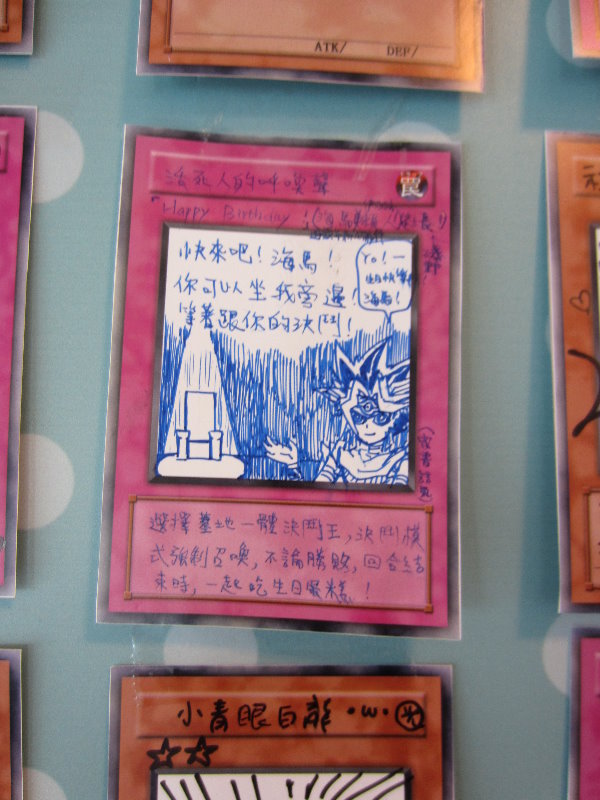 ATK/ DEF/
活死人的呼喚聲
罠
「Happy Birthday
快來吧！海馬！
你可以坐我旁邊！
等著跟你的決鬥！
Yo！一
生日快樂
海馬！
選擇墓地一體決鬥王，決鬥模
式強制召喚，不論勝敗，回合結
束時，一起吃生日蛋糕！
小青眼白龍 ·w· 光